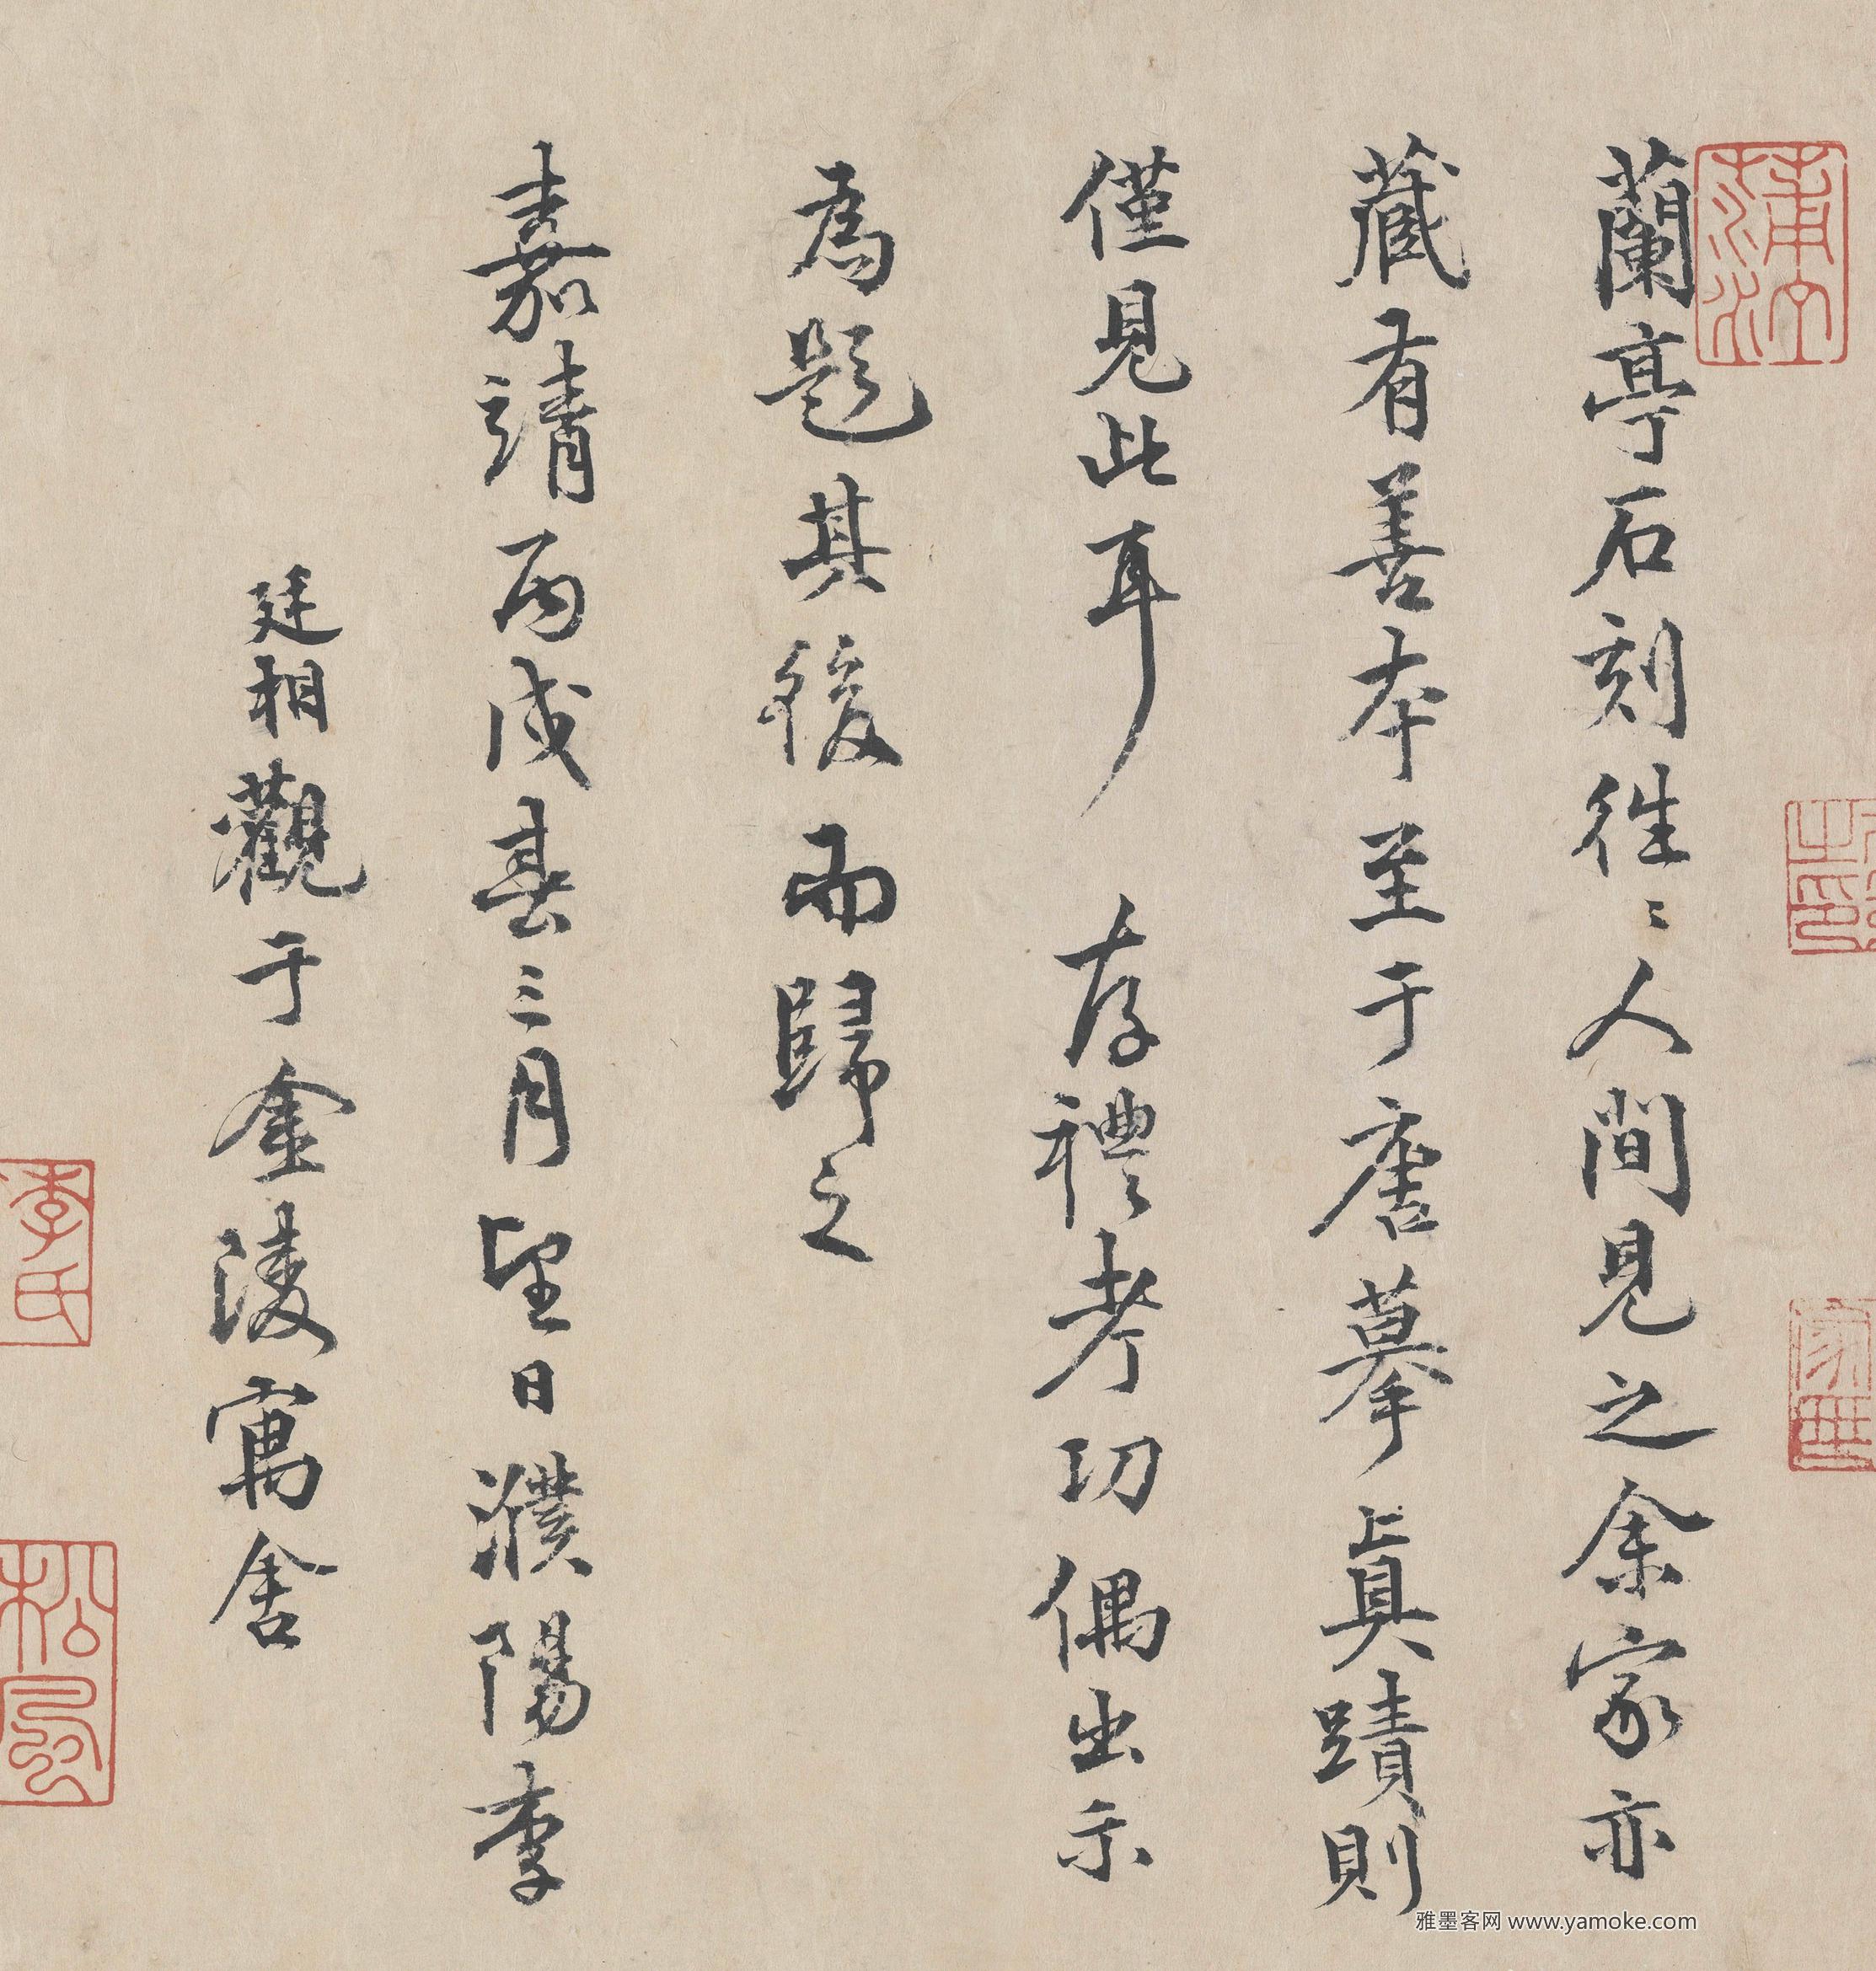 蘭亭石刻徃〻人間見之余家亦
藏有善本至于唐摹真蹟則
僅見此耳 存禮考功偶出示
為題其後而歸之
嘉靖丙戌春三月望日濮陽李
廷相觀于金陵寓舍
李氏
松
雅墨客网 www.yamoke.com